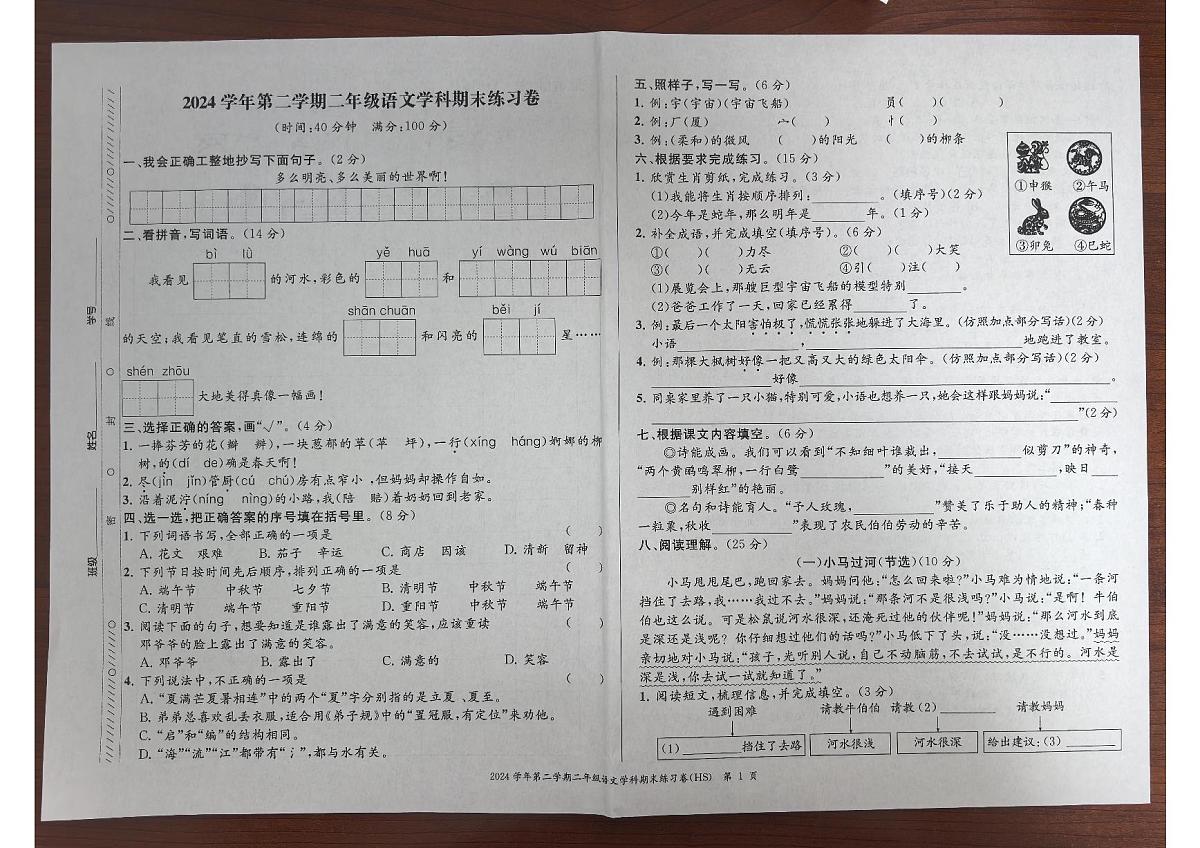 2024学年第二学期二年级语文学科期末练习卷
(时间:40分钟 满分:100分)
一、我会正确工整地抄写下面句子。(2分)
多么明亮、多么美丽的世界啊!
二、看拼音,写词语。(14分)
bì lǜ yě huā yí wàng wú biān
我看见 的河水,彩色的 和
shān chuān běi jí
的天空;我看见笔直的雪松,连绵的 和闪亮的 星……
shén zhōu
大地美得真像一幅画!
三、选择正确的答案,画“√”。(4分)
1. 一捧芬芳的花(瓣 辨),一块葱郁的草(苹 坪),一行(xíng háng)婀娜的柳
树,的(dí de)确是春天啊!
2. 尽(jìn jǐn)管厨(cú chú)房有点窄小,但妈妈却操作自如。
3. 沿着泥泞(níng nìng)的小路,我(陪 赔)着奶奶回到老家。
四、选一选,把正确答案的序号填在括号里。(8分)
1. 下列词语书写,全部正确的一项是 ( )
A. 花文 艰难 B. 茄子 辛运 C. 商店 因该 D. 清新 留神
2. 下列节日按时间先后顺序,排列正确的一项是 ( )
A. 端午节 中秋节 七夕节 B. 清明节 中秋节 端午节
C. 清明节 端午节 重阳节 D. 重阳节 中秋节 端午节
3. 阅读下面的句子,想要知道是谁露出了满意的笑容,应该重读 ( )
邓爷爷的脸上露出了满意的笑容。
A. 邓爷爷 B. 露出了 C. 满意的 D. 笑容
4. 下列说法中,不正确的一项是 ( )
A. “夏满芒夏暑相连”中的两个“夏”字分别指的是立夏、夏至。
B. 弟弟总喜欢乱丢衣服,适合用《弟子规》中的“置冠服,有定位”来劝他。
C. “启”和“编”的结构相同。
D. “海”“流”“江”都带有“氵”,都与水有关。
学号
姓名
班级
线
封
密
五、照样子,写一写。(6分)
1. 例:宇(宇宙)(宇宙飞船) 员( )( )
2. 例:厂(厦) 亠( ) 忄( )
3. 例:(柔和)的微风 ( )的阳光 ( )的柳条
六、根据要求完成练习。(15分)
1. 欣赏生肖剪纸,完成练习。(3分)
(1)我能将生肖按顺序排列:________。(填序号)(2分)
(2)今年是蛇年,那么明年是______年。(1分)
①申猴 ②午马
③卯兔 ④巳蛇
2. 补全成语,并完成填空(填序号)。(6分)
①( )( )力尽 ②( )( )大笑
③( )( )无云 ④引( )注( )
(1)展览会上,那艘巨型宇宙飞船的模型特别______。
(2)爸爸工作了一天,回家已经累得______了。
3. 例:最后一个太阳害怕极了,慌慌张张地躲进了大海里。(仿照加点部分写话)(2分)
小语______________,________________________地跑进了教室。
4. 例:那棵大枫树好像一把又高又大的绿色太阳伞。(仿照加点部分写话)(2分)
______________好像____________________________________。
5. 同桌家里养了一只小猫,特别可爱,小语也想养一只,她会这样跟妈妈说:“________
______________________________________________”(2分)
七、根据课文内容填空。(6分)
◎诗能成画。我们可以看到“不知细叶谁裁出,__________似剪刀”的神奇,
“两个黄鹂鸣翠柳,一行白鹭__________”的美好,“接天__________,映日____
______别样红”的艳丽。
◎名句和诗能育人。“子人玫瑰,__________”赞美了乐于助人的精神;“春种
一粒粟,秋收__________”表现了农民伯伯劳动的辛苦。
八、阅读理解。(25分)
(一)小马过河(节选)(10分)
小马甩甩尾巴,跑回家去。妈妈问他:“怎么回来啦?”小马难为情地说:“一条河
挡住了去路,我……我过不去。”妈妈说:“那条河不是很浅吗?”小马说:“是啊!牛伯
伯也这么说。可是松鼠说河水很深,还淹死过他的伙伴呢!”妈妈说:“那么河水到底
是深还是浅呢?你仔细想过他们的话吗?”小马低下了头,说:“没……没想过。”妈妈
亲切地对小马说:“孩子,光听别人说,自己不动脑筋,不去试试,是不行的。河水是
深是浅,你去试一试就知道了。”
1. 阅读短文,梳理信息,并完成填空。(3分)
遇到困难 请教牛伯伯 请教(2)________ 请教妈妈
(1)________挡住了去路 河水很浅 河水很深 给出建议:(3)________
2024学年第二学期二年级语文学科期末练习卷(HS) 第 1 页